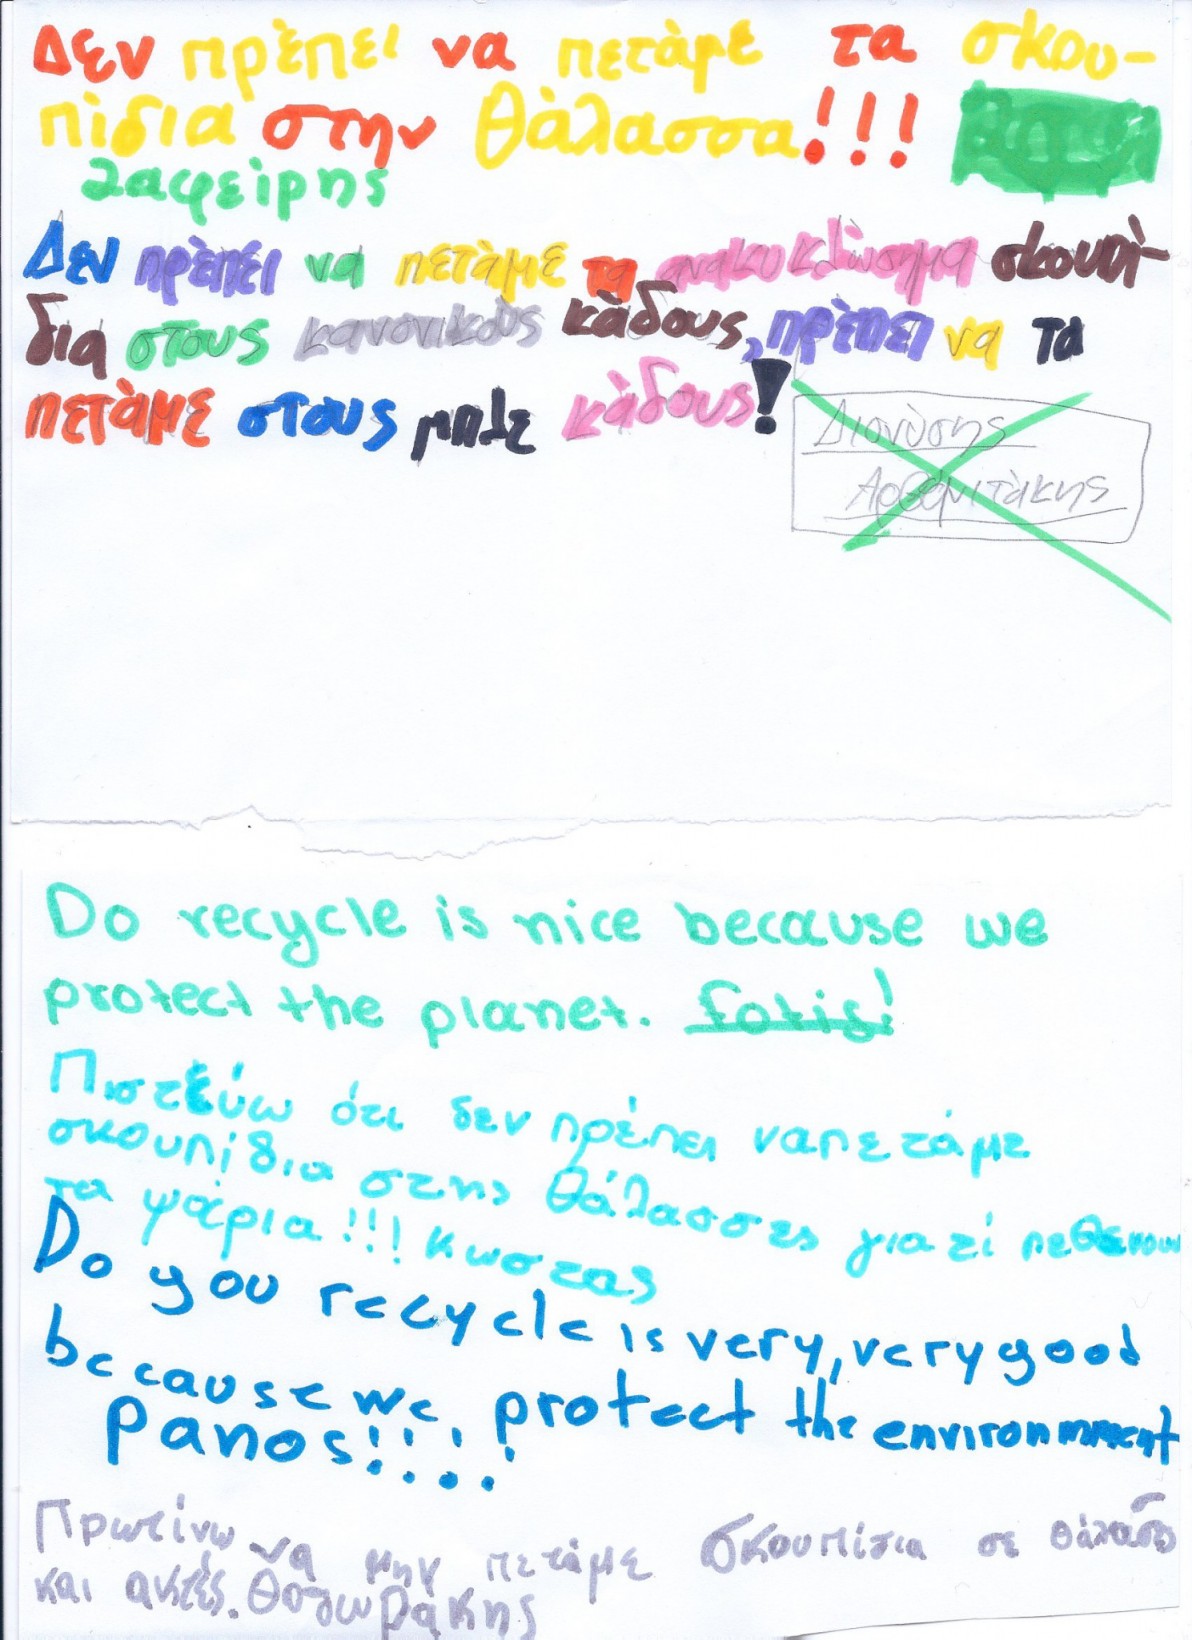 Δεν πρὲπει να πετὰμε τα σκου-
πὶδια στην θὰλασσα!!!
Ζαφεὶρης
Δεν πρὲπει να πετὰμε τα ανακυκλὼσημα σκουπὶ-
δια στους κανονικοὺς κὰδους, πρὲπει να τα
πετὰμε στους μπλε κὰδους!
Διονὺσης
Αρβανιτὰκης
Do recycle is nice because we
protect the planet. fotis!
Πιστεύω ότι δεν πρέπει ναπετάμε
σκουπίδια στης θάλασσες γιατί πεθενουν
τα ψάρια!!! Κωστας
Do you recycle is very, very good
because we protect the environment
Panos!!!!
Πρωτίνω να μην πετάμε σκουπίδια σε θάλασσε
και ακτές. Θολωράκης